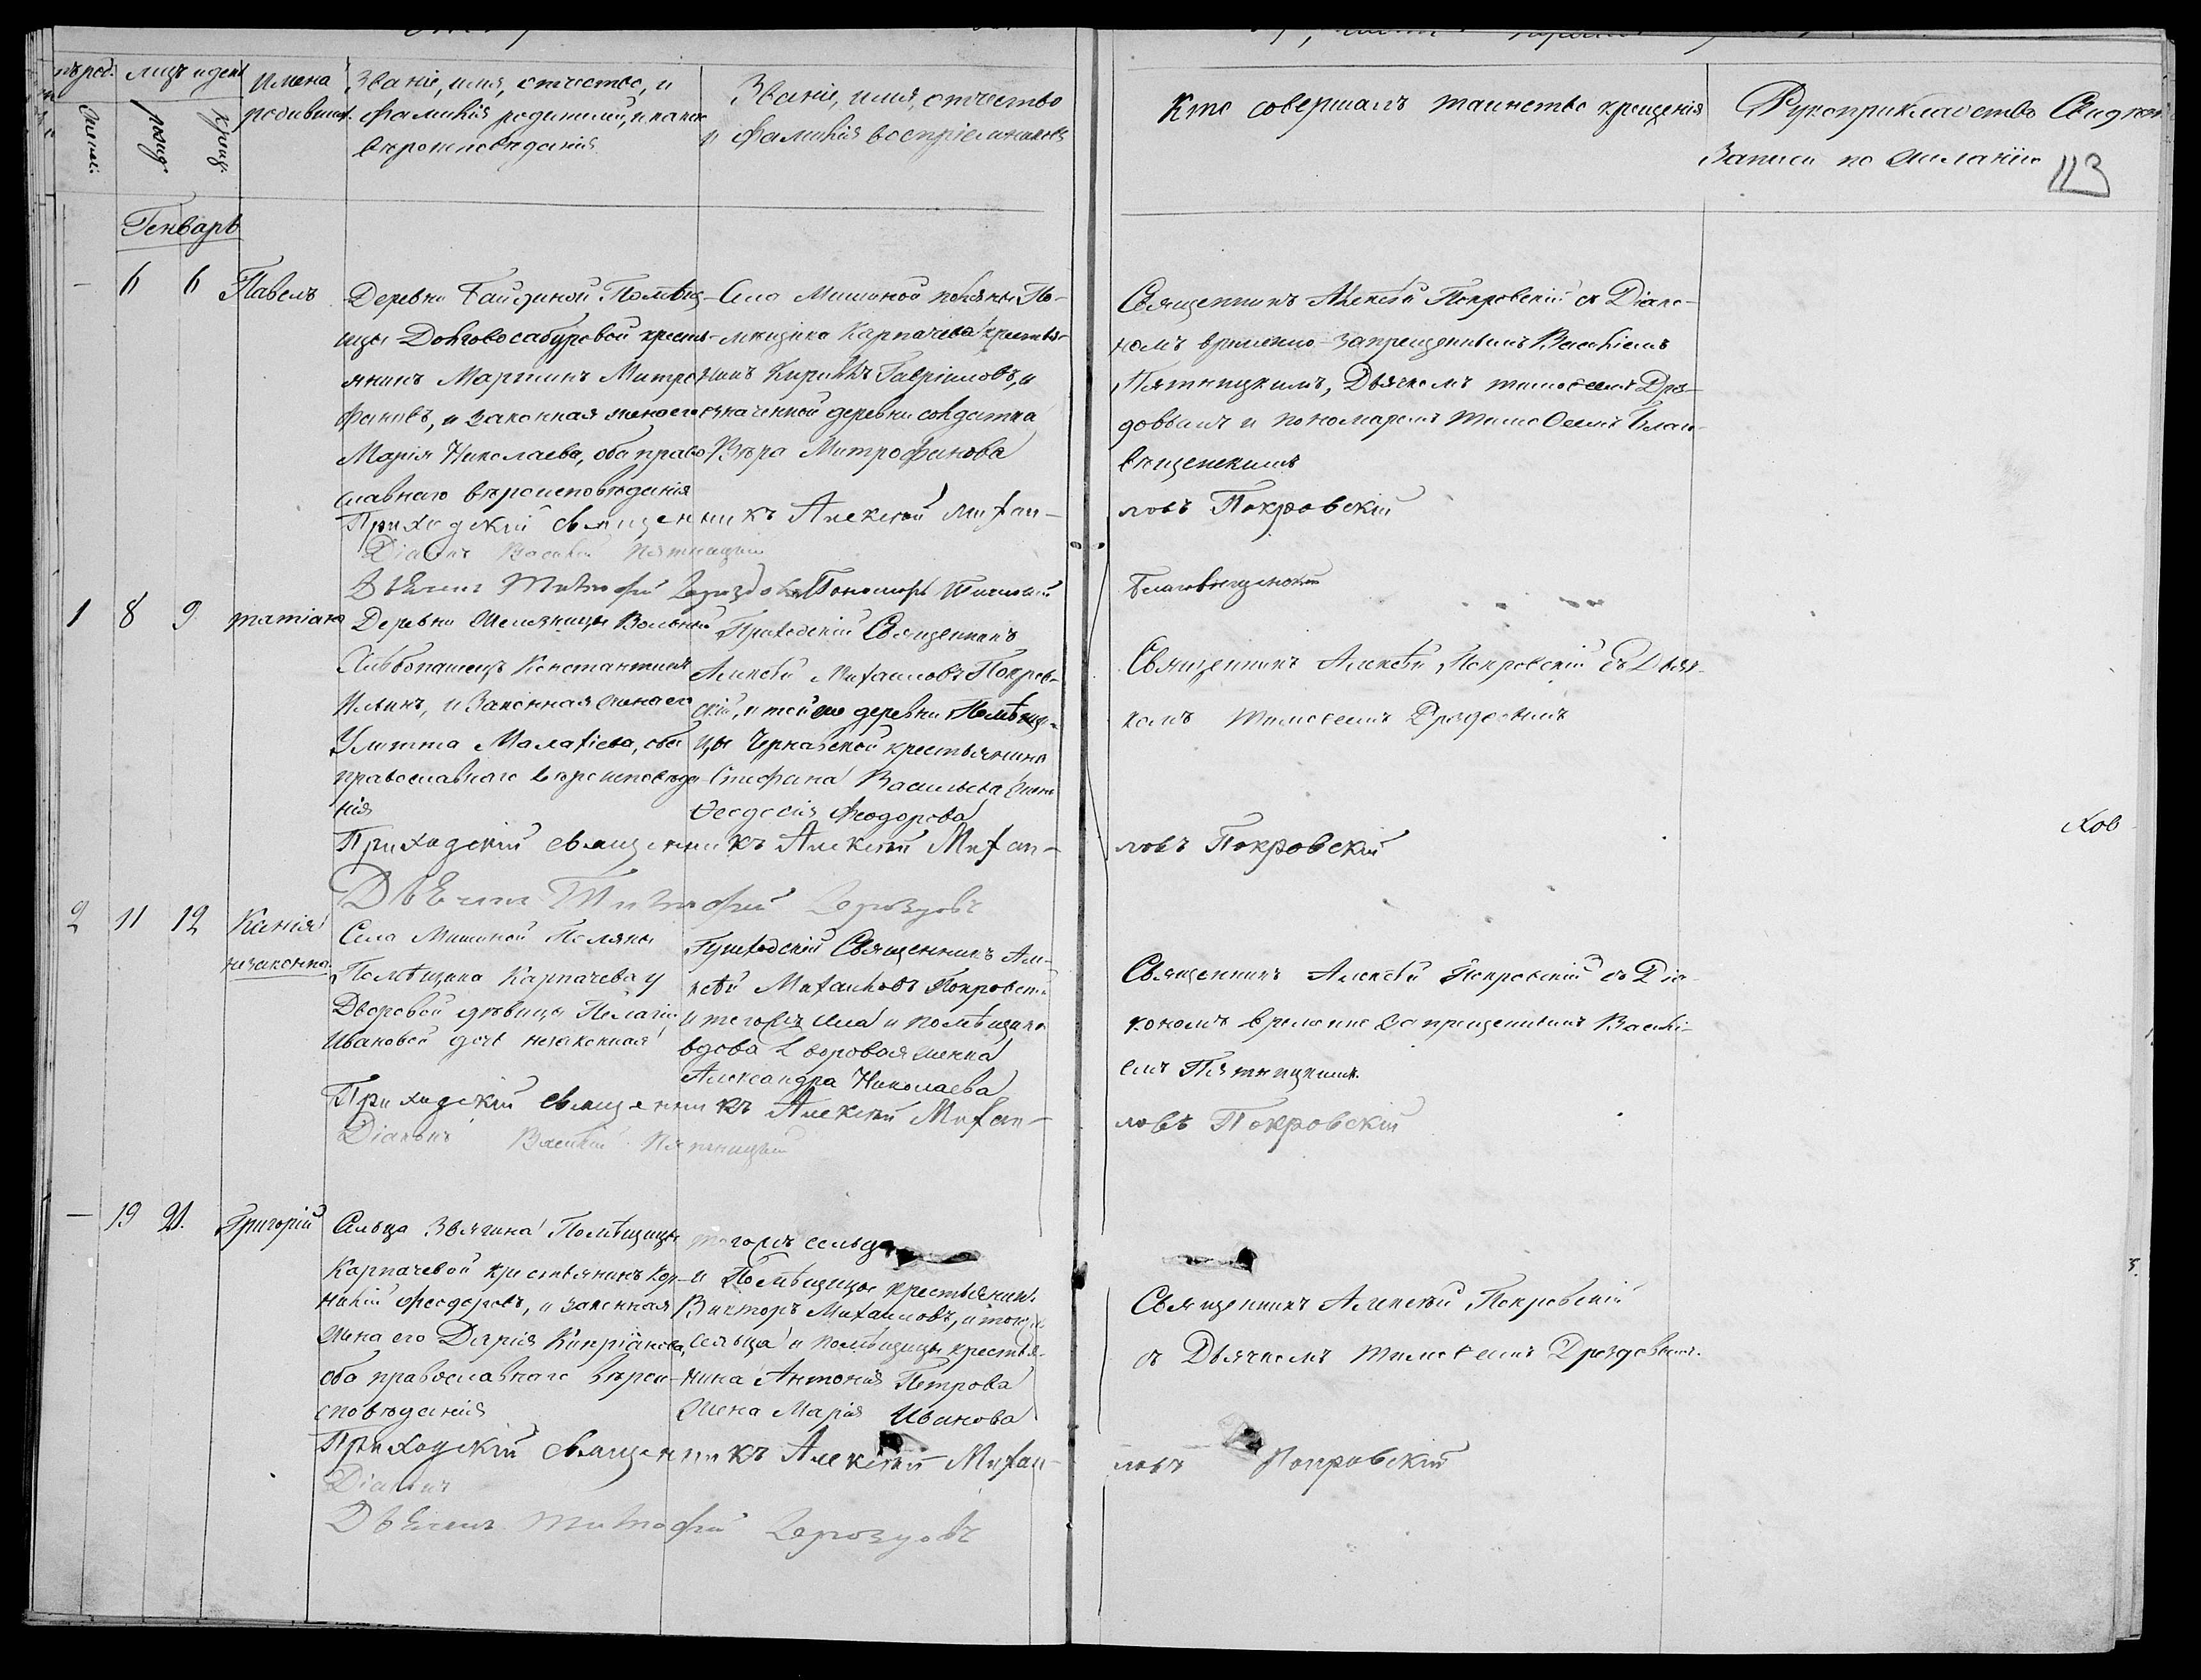 Имена родивших.
Званіе, имя, отчество, и
фамилія родителей, и какого
вѣроисповѣданія
Званіе, имя, отчество
и фамилія воспріемниковъ
Кто совершалъ таинство крещенія
Рукоприкладство
записи по желанію
113
Генварь
— 6 6 Павелъ
Деревни Гайдиной Помѣщи-
цы Долговосабуровой кресть-
янинъ Мартинъ Митро-
фановъ, и законная жена его
Марія Николаева, оба право-
славнаго вѣроисповѣданія
Села Мишиной поляны По-
мѣщика Карпачева крестья-
нинъ Кириллъ Гавріиловъ, и
означенной деревни солдатка
Вѣра Митрофанова
Священникъ Алексѣй Покровскій съ Діако-
номъ временно-запрещеннымъ Василіемъ
Пятницкимъ, Дьячкомъ Тимоѳеемъ Дроз-
довымъ и пономаремъ Тимоѳеемъ Благо-
вѣщенскимъ
Приходскій священникъ Алексѣй Михаи-
ловъ Покровскій
Діаконъ Василій Пятницкій
Дьячекъ Тимофей Дроздовъ Пономарь Тимоѳей
Благовѣщенскій
1 8 9 Татіана
Деревни Железницы Вольный
Хлѣбопашецъ Константинъ
Ильинъ, и Законная жена его
Улитта Малахіева, оба
православнаго вѣроисповѣда-
нія
Приходскій Священникъ
Алексѣй Михаиловъ Покров-
скій, и той же деревни Помѣщи-
цы Чернавской крестьянина
Стефана Васильева жена
Ѳеодосія Феодорова
Священникъ Алексѣй Покровскій съ Дьяч-
комъ Тимоѳеемъ Дроздовымъ
Ков
Приходскій священникъ Алексѣй Михаи-
ловъ Покровскій
Дьячекъ Тимофей Дроздовъ
2 11 12 Ксенія
незаконно.
Села Мишиной Поляны
Помѣщика Карпачева у
Дворовой дѣвицы Пелагіи
Ивановой дочь незаконная
Приходскій Священникъ Але-
ксѣй Михаиловъ Покровскій
и тогожъ села и помѣщика
вдова дворовая женка
Александра Николаева
Священникъ Алексѣй Покровскій съ Діа-
кономъ временно запрещеннымъ Васили-
емъ Пятницкимъ.
Приходскій священникъ Алексѣй Михаи-
ловъ Покровскій
Діаконъ Василій Пятницкій
— 19 21. Григорій
Сельца Звягина Помѣщицы
Карпачевой крестьянинъ Кор-
нилій Феодоровъ, и законная
жена его Дарія Кипріанова,
оба православнаго вѣрои-
сповѣданія
тогожъ сельца
и Помѣщицы крестьянинъ
Викторъ Михаиловъ, и тогожъ
сельца и помѣщицы крестья-
нина Антонія Петрова
жена Марія Иванова
Священникъ Алексѣй Покровскій
съ Дьячкомъ Тимоѳеемъ Дроздовымъ.
Приходскій священникъ Алексѣй Михаи-
ловъ Покровскій
Діаконъ
Дьячекъ Тимофей Дроздовъ